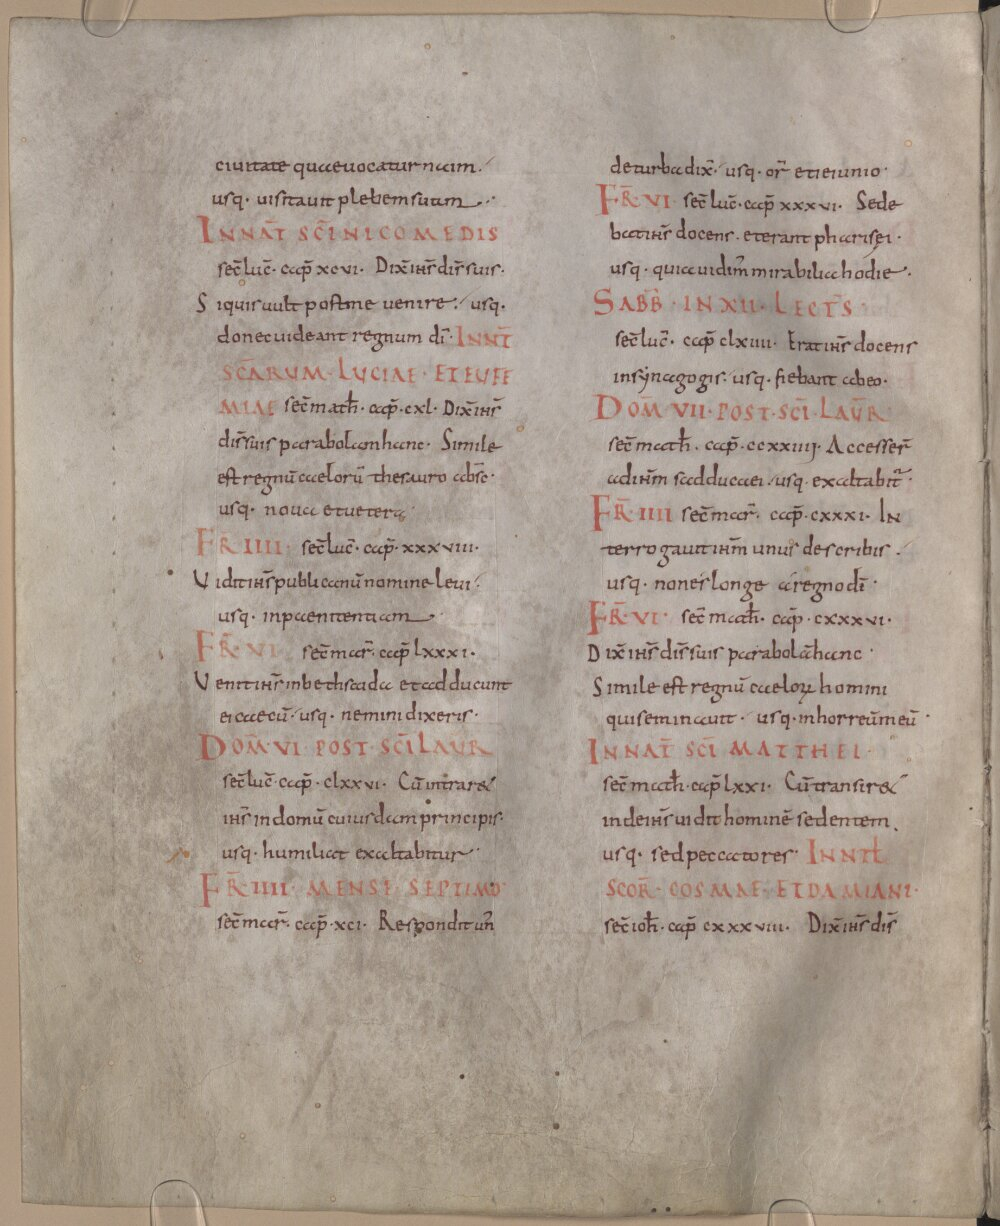 ciuitate quae uocatur naim.
usq· uisitauit plebem suam
IN NAT̄ SC̄I NICOMEDIS
sec̄ luc̄· cap̄ xcvi· Dix̄ ih̄s dis̄ suis·
Si quis uult post me uenire· usq·
donec uideant regnum dī· IN NT̄
SC̄ARUM· LUCIAE· ET EUFE
MIAE sec̄ math̄· cap̄· cxl· Dix̄ ih̄s
dis̄ suis parabolam hanc· Simile
est regnū caelorū thesauro absc̄·
usq· noua et uetera
FR̄ IIII· sec̄ luc̄· cap̄· xxxviii·
Vidit ih̄s publicanū nomine leui·
usq· in paenitentiam
FR̄· VI· sec̄ mar̄· cap̄ lxxxi·
Venit ih̄s in bethsaida et adducunt
ei caecū· usq· nemini dixeris·
DOM̄ VI· POST· SC̄I LAUR̄
sec̄ luc̄· cap̄· clxxvi· Cū intraret
ih̄s in domū cuiusdam principis·
usq· humiliat exaltabitur
FR̄ IIII· MENSE SEPTIMO·
sec̄ mar̄· cap̄· xci· Respondit un̄
de turba dix̄· usq· or̄ et ieiunio·
FR̄ VI sec̄ luc̄· cap̄ xxxvi· Sede
bat ih̄s docens· et erant pharisei·
usq· quia uidim̄ mirabilia hodie·
SABB̄· IN XII· LECT̄S
sec̄ luc̄· cap̄ clxiiii· Erat ih̄s docens
in synagogis· usq· fiebant ab eo·
DOM̄ VII· POST· SC̄I· LAUR̄
sec̄ math̄· cap̄· ccxxiiij· Accesser̄
ad ih̄m sadducaei· usq· exaltabit̄·
FR̄· IIII sec̄ mar̄· cap̄· cxxxi· In
terrogauit ih̄m unus de scribis·
usq· non es longe a regno dī·
FR̄· VI· sec̄ math̄· cap̄· cxxxvi·
Dix̄ ih̄s dis̄ suis parabolā hanc·
Simile est regnū caeloꝝ homini
qui seminauit· usq· in horreūm eū·
IN NAT̄ SC̄I MATTHEI·
sec̄ math̄· cap̄ lxxi· Cū transiret
inde ih̄s uidit hominē sedentem
usq· sed peccatores· IN NTL̄
SCOR̄· COSMAE· ET DAMIANI·
sec̄ ioh̄· cap̄ cxxxviii· Dix̄ ih̄s dis̄